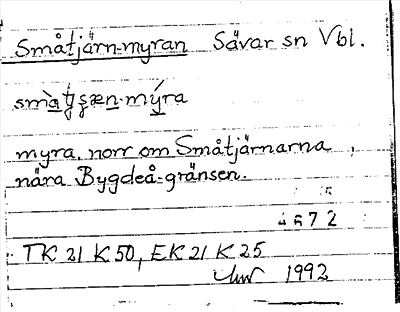 Småtjärn-myran Sävar sn Vbl.
myra, norr om Småtjärnarna,
nära Bygdeå-gränsen.
4572
TK 21 K 50, EK 21 K 25
1992